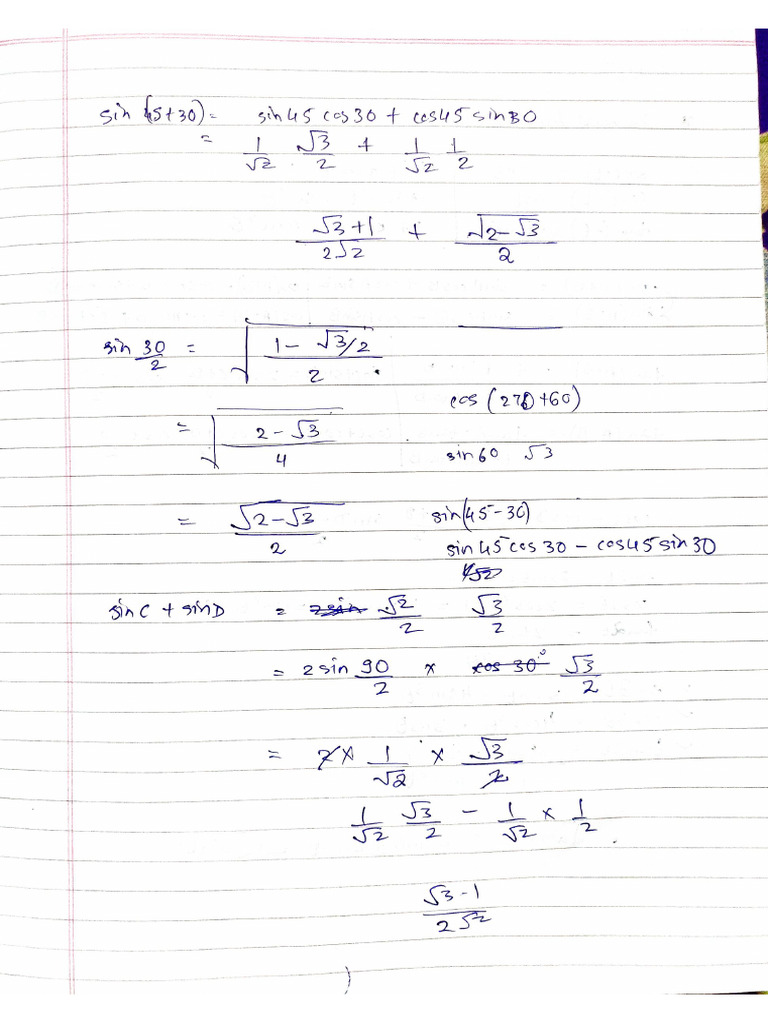 sin (45+30) = sin 45 cos 30 + cos 45 sin 30
= 1/√2 √3/2 + 1/√2 1/2
√3+1/2√2 + √2-√3/2
sin 30/2 = √(1-√3/2)/2
cos (270+60)
= √(2-√3)/4
sin 60 √3
= √2-√3/2
sin(45-30)
sin 45 cos 30 - cos 45 sin 30
1/√2
sin C + sin D = 2 sin √2/2 √3/2
= 2 sin 90/2 × cos 30° √3/2
= 2 × 1/√2 × √3/2
1/√2 √3/2 - 1/√2 × 1/2
√3-1/2√2